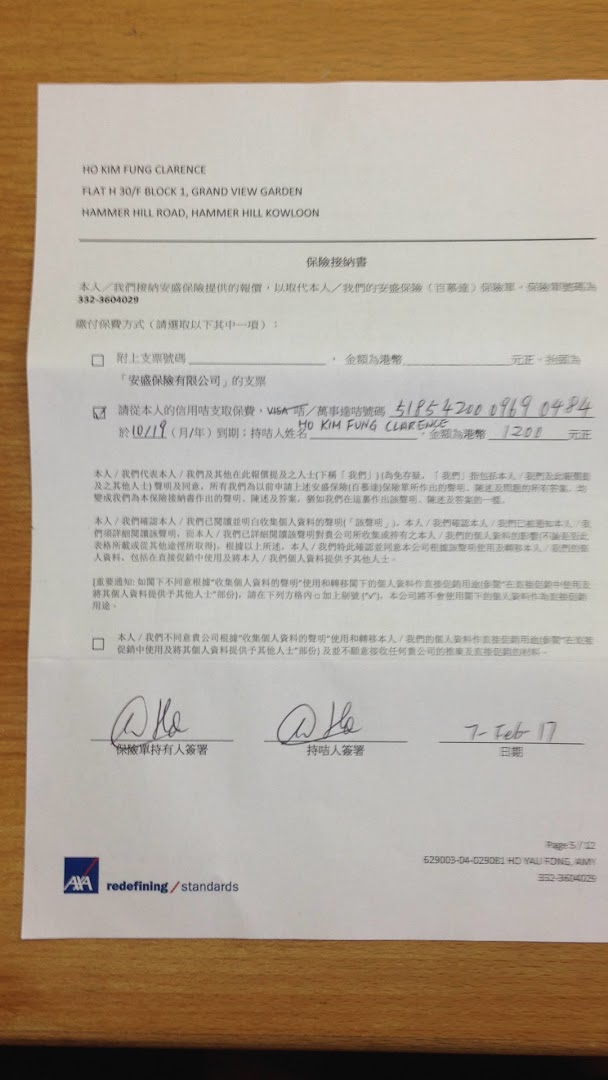 HO KIM FUNG CLARENCE
FLAT H 30/F BLOCK 1, GRAND VIEW GARDEN
HAMMER HILL ROAD, HAMMER HILL KOWLOON
保險接納書
本人／我們接納安盛保險提供的報價，以取代本人／我們的安盛保險（百慕達）保險單。保險單號碼為
332-3604029
繳付保費方式（請選取以下其中一項）：
附上支票號碼 ，金額為港幣 元正。抬頭為
「安盛保險有限公司」的支票
請從本人的信用咭支取保費，VISA 咭／萬事達咭號碼 5185 4200 0969 0484
於 10/19 （月/年）到期；持咭人姓名 HO KIM FUNG CLARENCE ，金額為港幣 1200 元正
本人 / 我們代表本人 / 我們及其他在此報價提及之人士(下稱「我們」) (為免存疑，「我們」指包括本人 / 我們及此報價提
及之其他人士) 聲明及同意，所有我們為以前申請上述安盛保險(百慕達)保險單所作出的聲明、陳述及問題的所有答案，均
變成我們為本保險接納書作出的聲明、陳述及答案，猶如我們在這裏作出該聲明、陳述及答案的一樣。
本人 / 我們確認本人 / 我們已閱讀並明白收集個人資料的聲明(「該聲明」)。本人 / 我們確認本人 / 我們已被通知本人 / 我
們須詳細閱讀該聲明，而本人 / 我們已詳細閱讀該聲明對貴公司所收集或持有之本人 / 我們的個人資料的影響(不論是在此
表格所載或從其他途徑所取得)。根據以上所述，本人 / 我們特此確認並同意本公司根據該聲明使用及轉移本人 / 我們的個
人資料，包括在直接促銷中使用及將本人 / 我們的個人資料提供予其他人士。
[重要通知: 如閣下不同意根據"收集個人資料的聲明"使用和轉移閣下的個人資料作直接促銷用途(參閱"在直接促銷中使用及
將其個人資料提供予其他人士"部份)，請在下列方格內□加上剔號 ("v")，本公司將不會使用閣下的個人資料作為直接促銷
用途。
本人 / 我們不同意貴公司根據"收集個人資料的聲明"使用和轉移本人 / 我們的個人資料作直接促銷用途(參閱"在直接
促銷中使用及將其個人資料提供予其他人士"部份) 及並不願意接收任何貴公司的推廣及直接促銷的材料。
7-Feb 17
保險單持有人簽署 持咭人簽署 日期
Page 5 / 12
629003-04-029081 HO YAU FONG, AMY
332-3604029
AXA redefining / standards